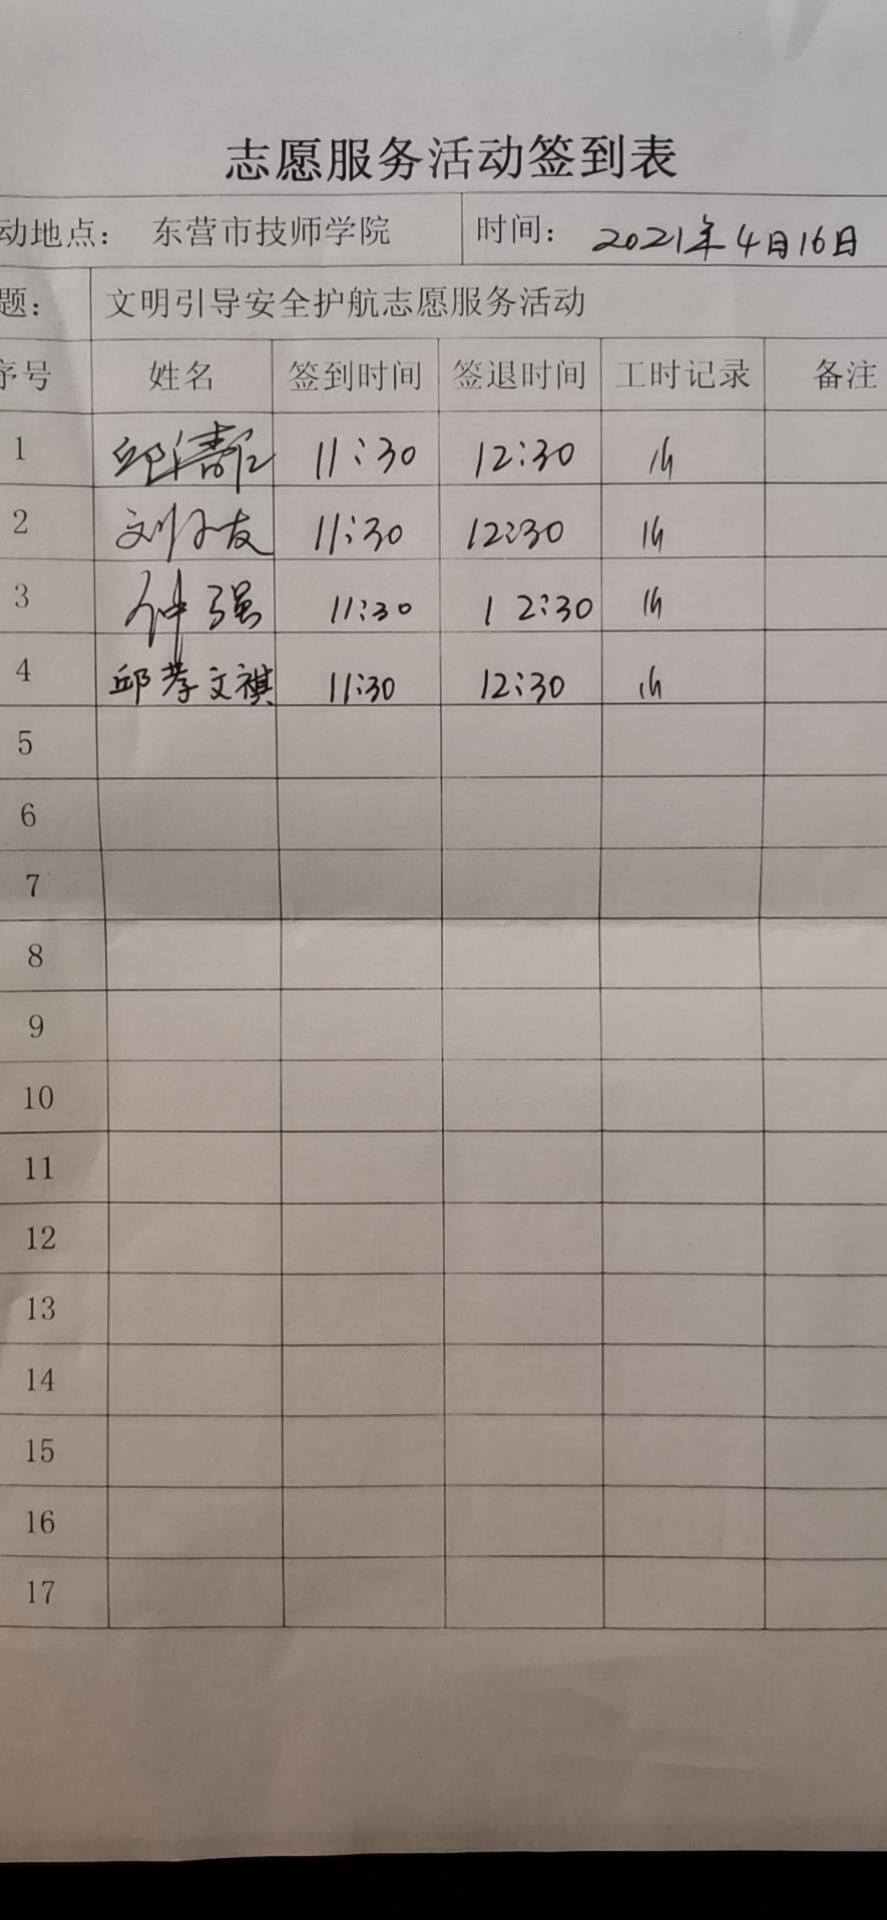 志愿服务活动签到表
动地点： 东营市技师学院 时间： 2021年4月16日
题： 文明引导安全护航志愿服务活动
序号 姓名 签到时间 签退时间 工时记录 备注
1 邱 11:30 12:30 1h
2 刘 友 11:30 12:30 1h
3 钟强 11:30 12:30 1h
4 邱孝文祺 11:30 12:30 1h
5
6
7
8
9
10
11
12
13
14
15
16
17